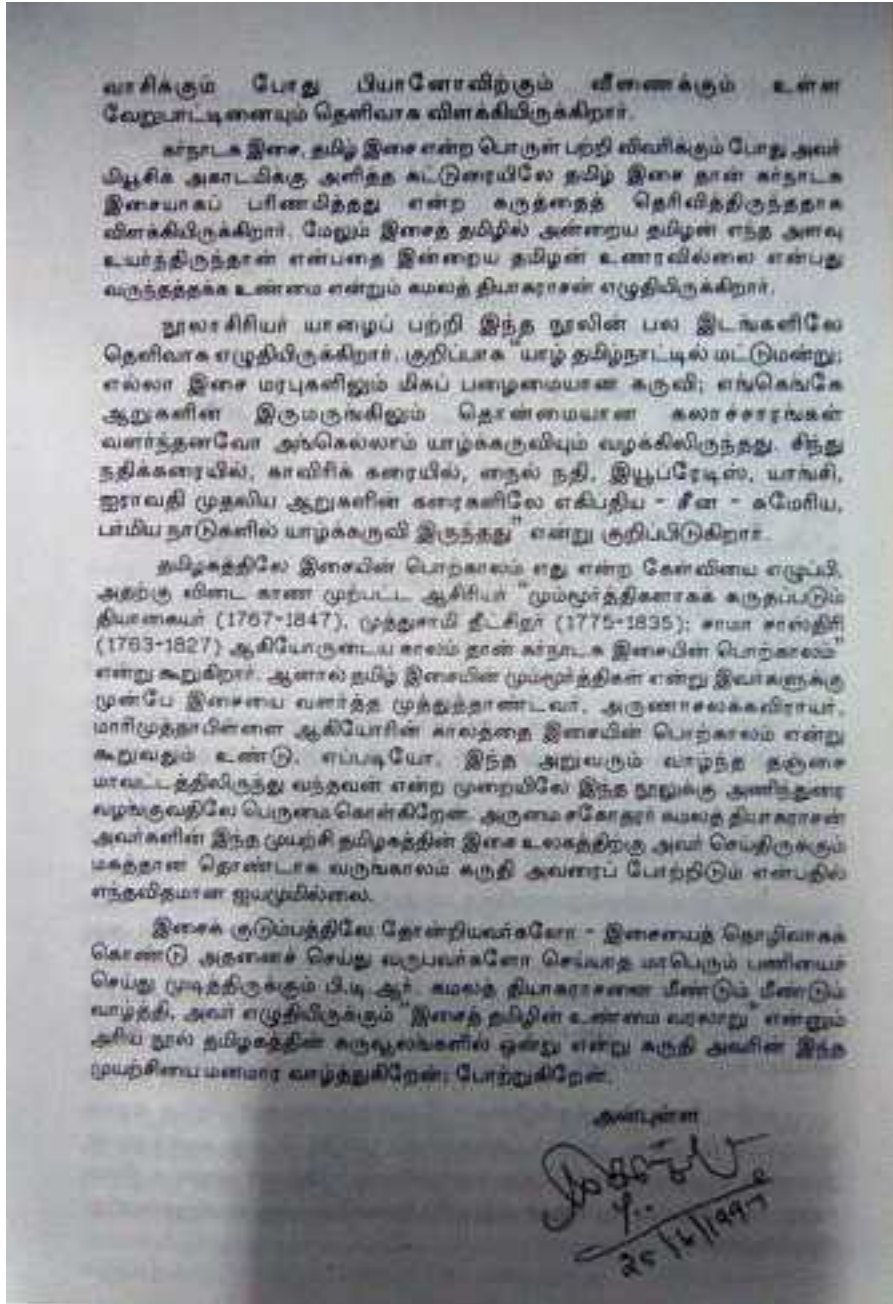 வாசிக்கும் போது பியானோவிற்கும் வீணைக்கும் உள்ள
வேறுபாட்டினையும் தெளிவாக விளக்கியிருக்கிறார்.
கர்நாடக இசை, தமிழ் இசை என்ற பொருள் பற்றி விவரிக்கும் போது அவர்
மியூசிக் அகாடமிக்கு அளித்த கட்டுரையிலே தமிழ் இசை தான் கர்நாடக
இசையாகப் பரிணமித்தது என்ற கருத்தைத் தெரிவித்திருந்ததாக
விளக்கியிருக்கிறார். மேலும் இசைத் தமிழில் அன்றைய தமிழன் எந்த அளவு
உயர்ந்திருந்தான் என்பதை இன்றைய தமிழன் உணரவில்லை என்பது
வருந்தத்தக்க உண்மை என்றும் கமலத் தியாகராசன் எழுதியிருக்கிறார்.
நூலாசிரியர் யாழைப் பற்றி இந்த நூலின் பல இடங்களிலே
தெளிவாக எழுதியிருக்கிறார். குறிப்பாக "யாழ் தமிழ்நாட்டில் மட்டுமன்று;
எல்லா இசை மரபுகளிலும் மிகப் பழைமையான கருவி; எங்கெங்கே
ஆறுகளின் இருமருங்கிலும் தொன்மையான கலாச்சாரங்கள்
வளர்ந்தனவோ அங்கெல்லாம் யாழ்க்கருவியும் வழக்கிலிருந்தது. சிந்து
நதிக்கரையில், காவிரிக் கரையில், நைல் நதி, இயூப்ரேடிஸ், யாங்சி,
ஐராவதி முதலிய ஆறுகளின் கரைகளிலே எகிபதிய - சீன - சுமேரிய,
பர்மிய நாடுகளில் யாழ்க்கருவி இருந்தது" என்று குறிப்பிடுகிறார்.
தமிழகத்திலே இசையின் பொற்காலம் எது என்ற கேள்வியை எழுப்பி,
அதற்கு விடை காண முற்பட்ட ஆசிரியர் "மும்மூர்த்திகளாகக் கருதப்படும்
தியாகையர் (1767-1847), முத்துசாமி தீட்சிதர் (1775-1835); சாமா சாஸ்திரி
(1763-1827) ஆகியோருடைய காலம் தான் கர்நாடக இசையின் பொற்காலம்"
என்று கூறுகிறார். ஆனால் தமிழ் இசையின் மும்மூர்த்திகள் என்று இவர்களுக்கு
முன்பே இசையை வளர்த்த முத்துத்தாண்டவர், அருணாசலக்கவிராயர்,
மாரிமுத்தாபிள்ளை ஆகியோரின் காலத்தை இசையின் பொற்காலம் என்று
கூறுவதும் உண்டு. எப்படியோ, இந்த அறுவரும் வாழ்ந்த தஞ்சை
மாவட்டத்திலிருந்து வந்தவன் என்ற முறையிலே இந்த நூலுக்கு அணிந்துரை
வழங்குவதிலே பெருமை கொள்கிறேன். அருமை சகோதரர் கமலத் தியாகராசன்
அவர்களின் இந்த முயற்சி தமிழகத்தின் இசை உலகத்திற்கு அவர் செய்திருக்கும்
மகத்தான தொண்டாக வருங்காலம் கருதி அவரைப் போற்றிடும் என்பதில்
எந்தவிதமான ஐயமுமில்லை.
இசைக் குடும்பத்திலே தோன்றியவர்களோ - இசையைத் தொழிலாகக்
கொண்டு அதனைச் செய்து வருபவர்களோ செய்யாத மாபெரும் பணியைச்
செய்து முடித்திருக்கும் பி.டி.ஆர். கமலத் தியாகராசனை மீண்டும் மீண்டும்
வாழ்த்தி, அவர் எழுதியிருக்கும் "இசைத் தமிழின் உண்மை வரலாறு" என்னும்
அரிய நூல் தமிழகத்தின் கருவூலங்களில் ஒன்று என்று கருதி அவரின் இந்த
முயற்சியை மனமார வாழ்த்துகிறேன்; போற்றுகிறேன்.
அன்புள்ள
25/6/1997